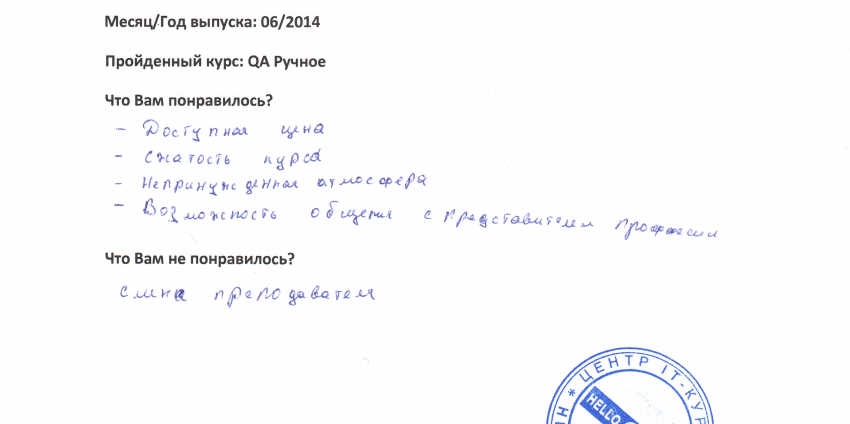 Месяц/Год выпуска: 06/2014
Пройденный курс: QA Ручное
Что Вам понравилось?
- Доступная цена
- Сжатость курса
- Непринужденная атмосфера
- Возможность общения с представителем профессии
Что Вам не понравилось?
Смена преподавателя
* ЦЕНТР IT-КУР
HELLO